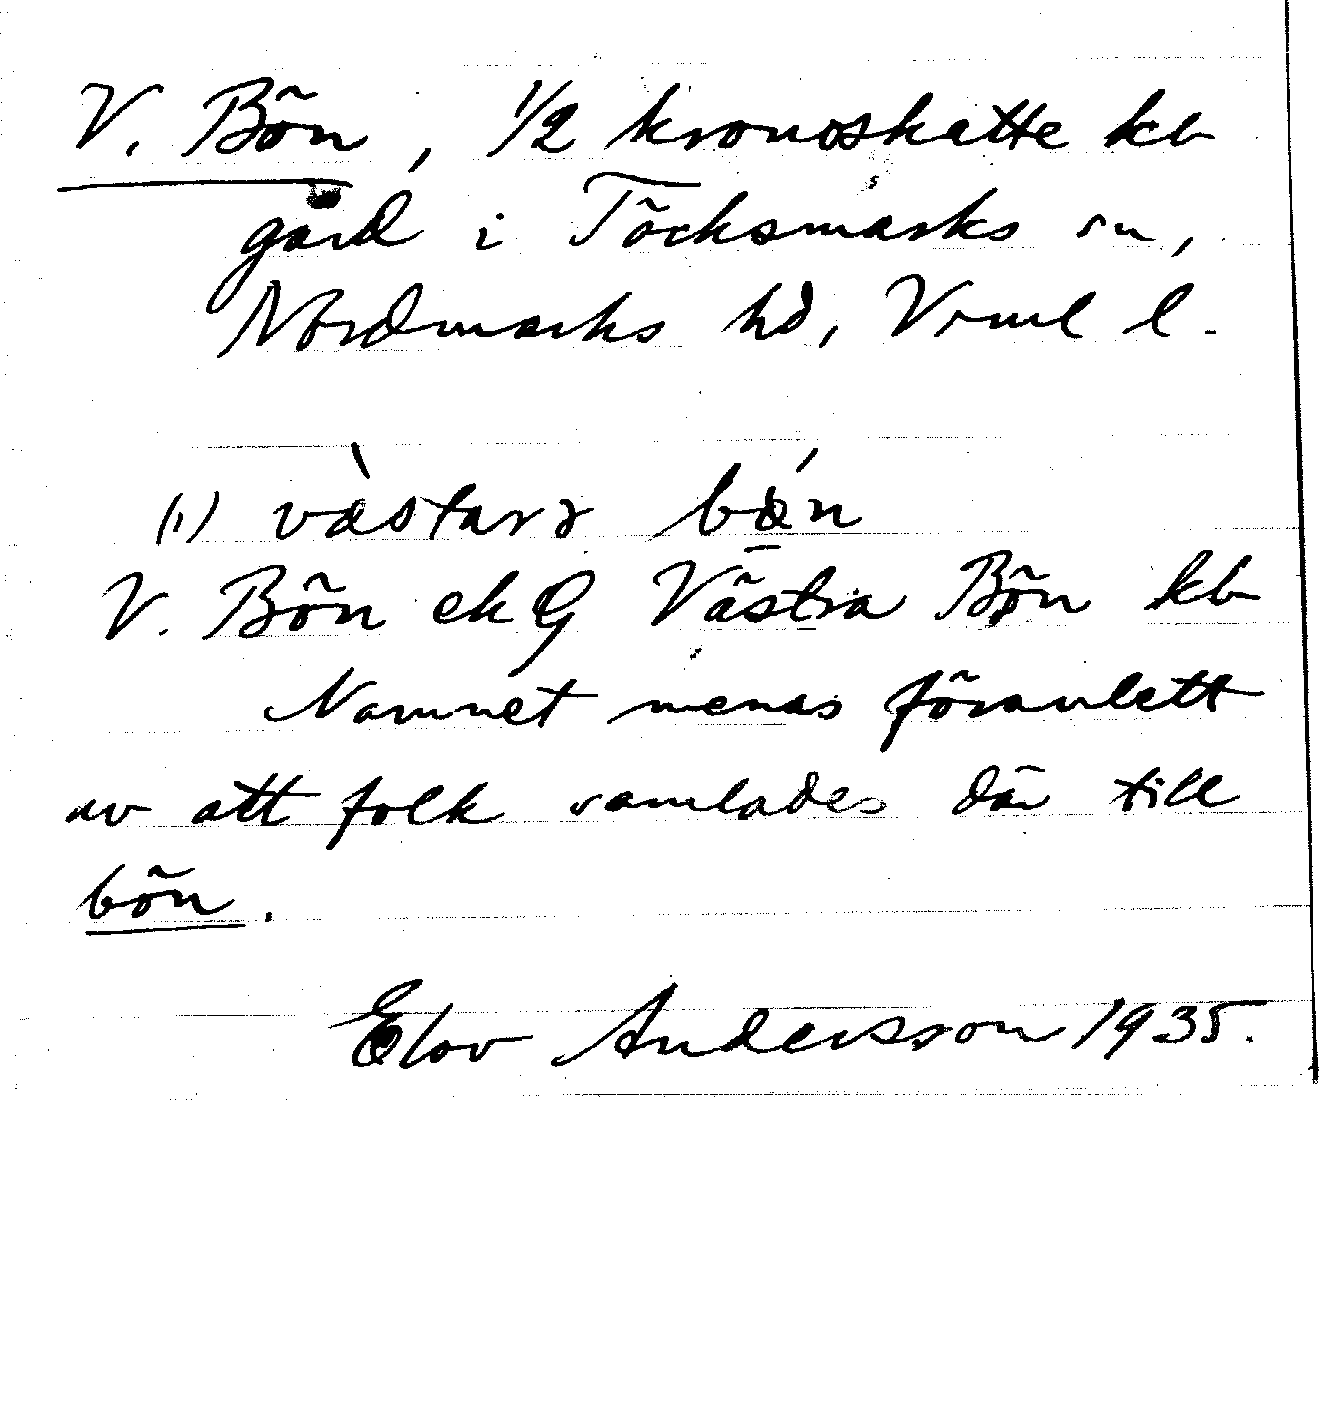 V. Bön, 1/2 kronoskatte kb
gård i Töcksmarks sn,
Nordmarks hd, Vrml l.
(1) västarɂ bøn
V. Bön ek G Västra Bön kb
Namnet menas föranlett
av att folk samlades där till
bön.
Elov Andersson 1935.